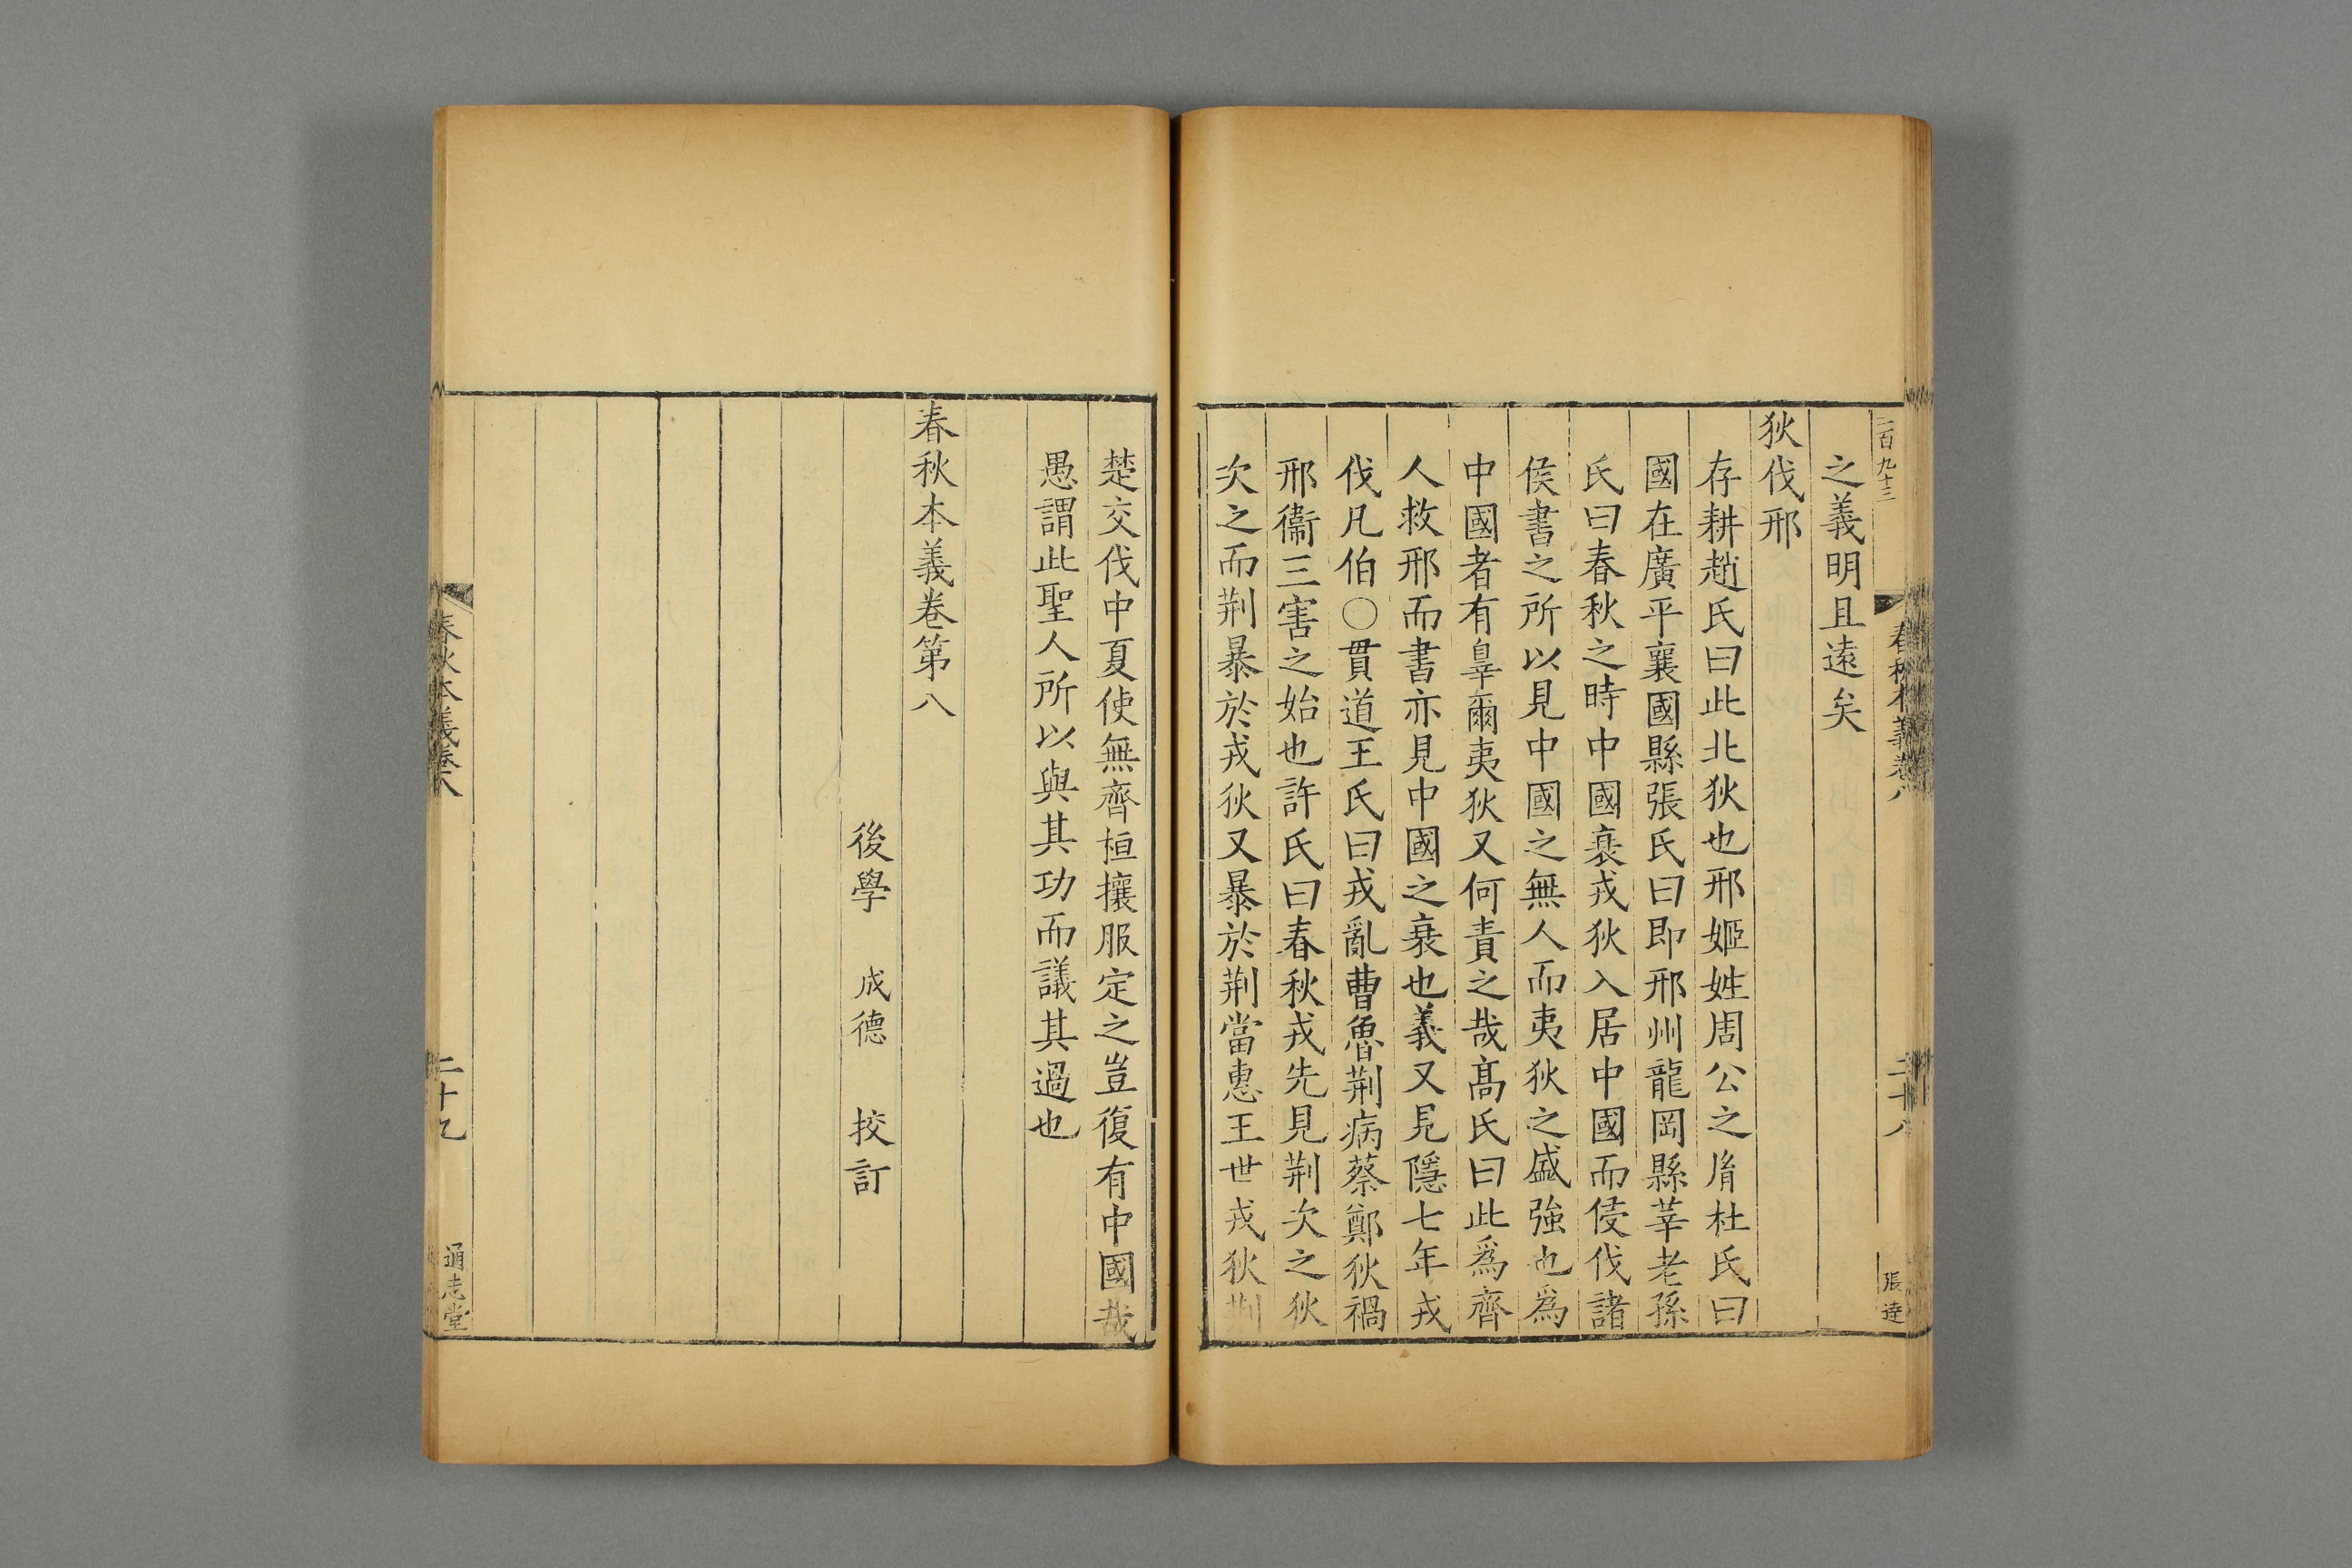 二百九十三
春秋本義卷八
二十八
張逵
之義明且遠矣
狄伐邢
存耕趙氏曰此北狄也邢姬姓周公之胤杜氏曰
國在廣平襄國縣張氏曰即邢州龍岡縣莘老孫
氏曰春秋之時中國衰戎狄入居中國而侵伐諸
侯書之所以見中國之無人而夷狄之盛強也為
中國者有辠爾夷狄又何責之哉高氏曰此爲齊
人救邢而書亦見中國之衰也義又見隱七年戎
伐凡伯○貫道王氏曰戎亂曹魯荆病蔡鄭狄禍
邢衞三害之始也許氏曰春秋戎先見荆次之狄
次之而荆暴於戎狄又暴於荆當惠王世戎狄荆
楚交伐中夏使無齊桓攘服定之豈復有中國哉
愚謂此聖人所以與其功而議其過也
春秋本義卷第八
後學 成德 挍訂
春秋本義卷八
二十九
通志堂